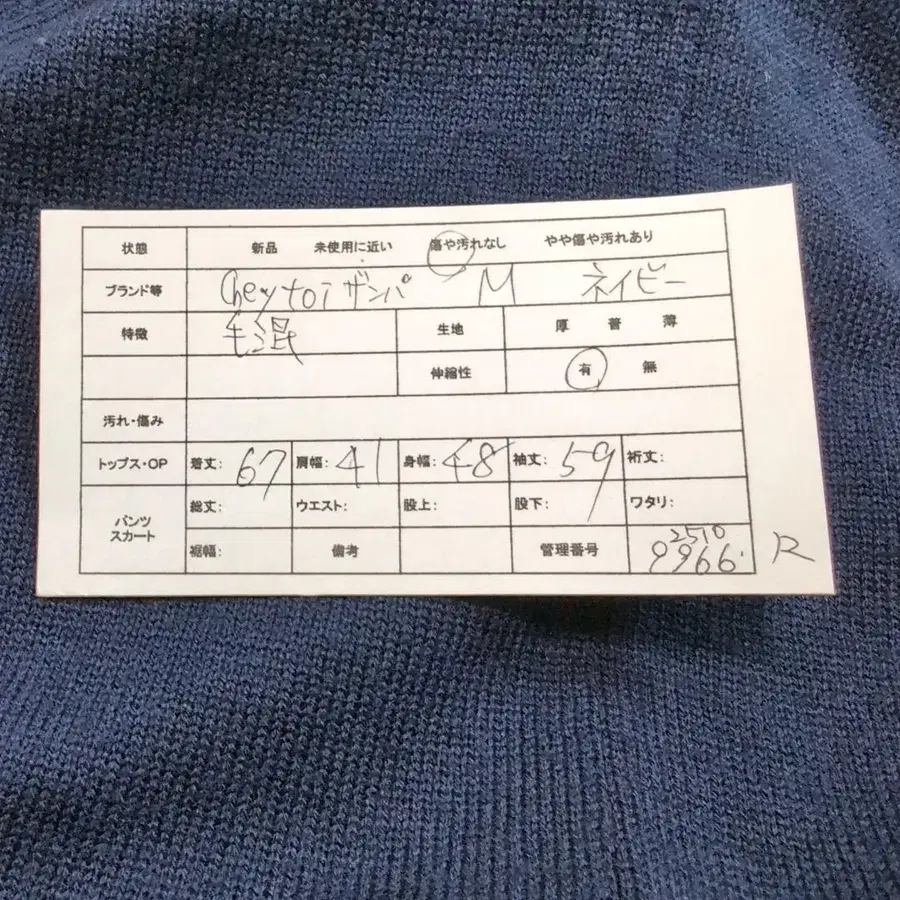 状態 新品 未使用に近い 傷や汚れなし やや傷や汚れあり
ブランド等 Cheytoi ザンパ M ネイビー
特徴 毛混 生地 厚 普 薄
伸縮性 有 無
汚れ・傷み
トップス・OP 着丈: 67 肩幅: 41 身幅: 48 袖丈: 59 裄丈:
パンツ スカート 総丈: ウエスト: 股上: 股下: ワタリ:
裾幅: 備考 管理番号 2510
9966 R